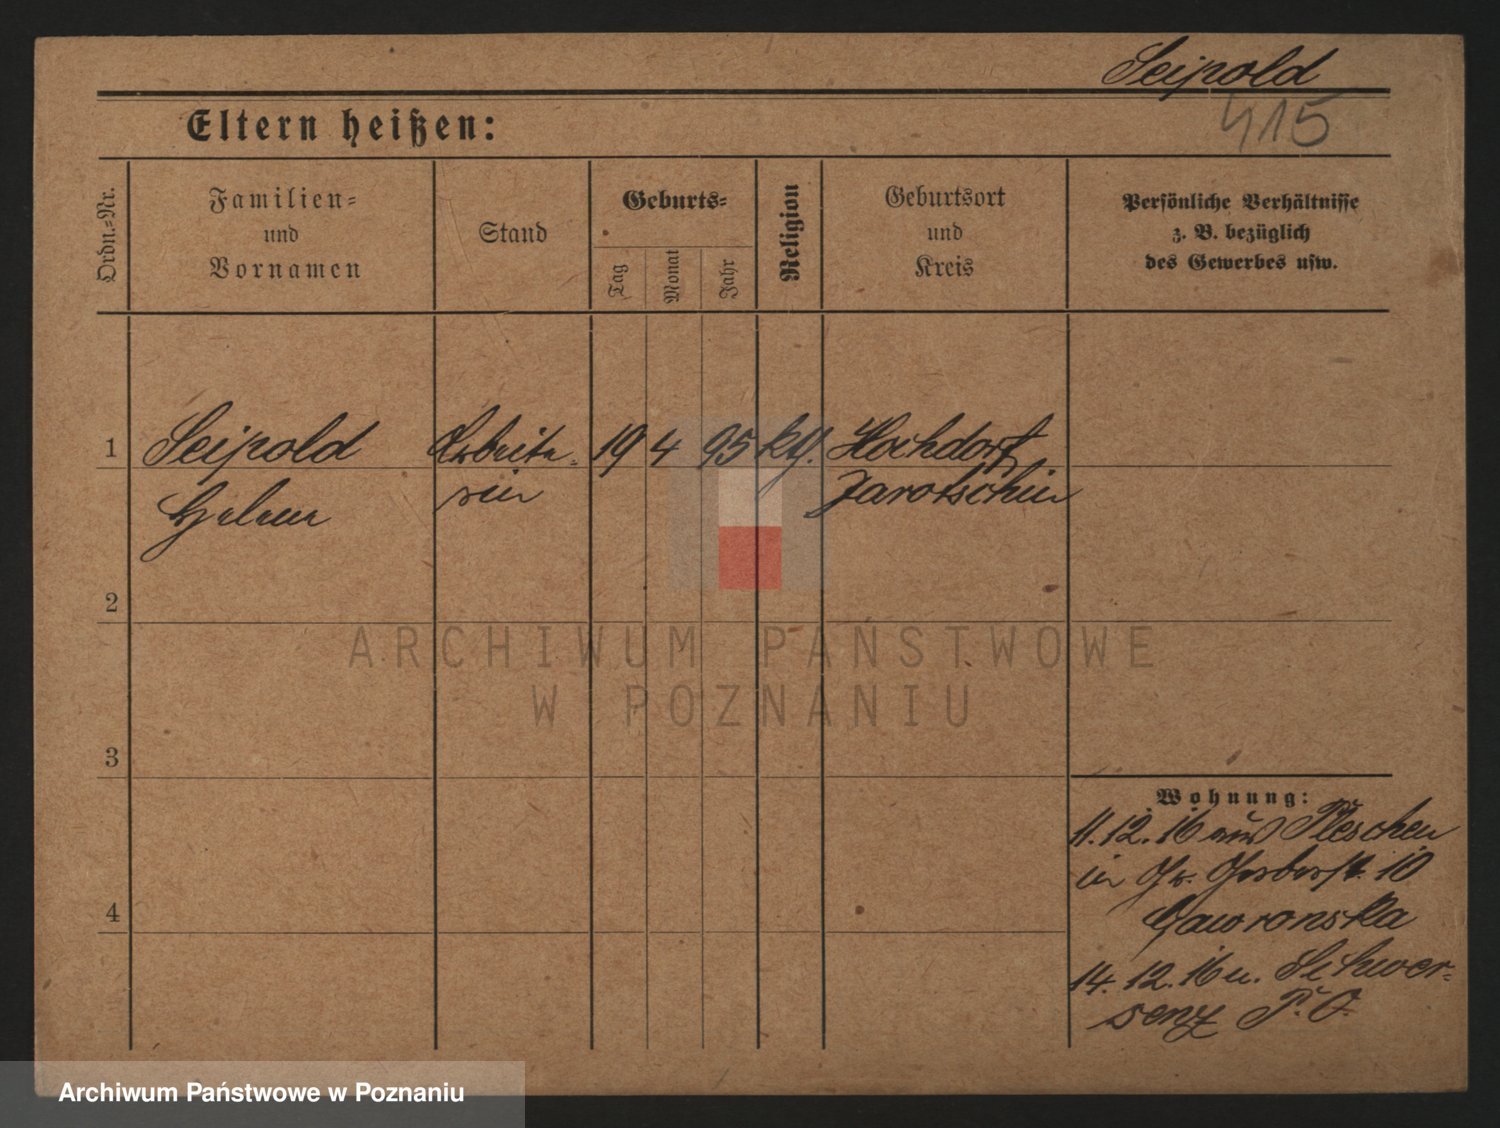 Seipold
415
Eltern heißen:
Ordn.-Nr.
Familien-
und
Vornamen
Stand
Geburts-
Tag
Monat
Jahr
Religion
Geburtsort
und
Kreis
Persönliche Verhältnisse
z. B. bezüglich
des Gewerbes usw.
1 Seipold Arbeite- 19 4 95 kth. Hochdorf
Helena rin Jarotschin
2
ARCHIWUM PAŃSTWOWE
W POZNANIU
3
Wohnung:
11.12.16 aus Pleschen
in Gr. Gerberst. 10
Gawronska
4
14.12.16 n. Schwer-
senz P. O.
Archiwum Państwowe w Poznaniu